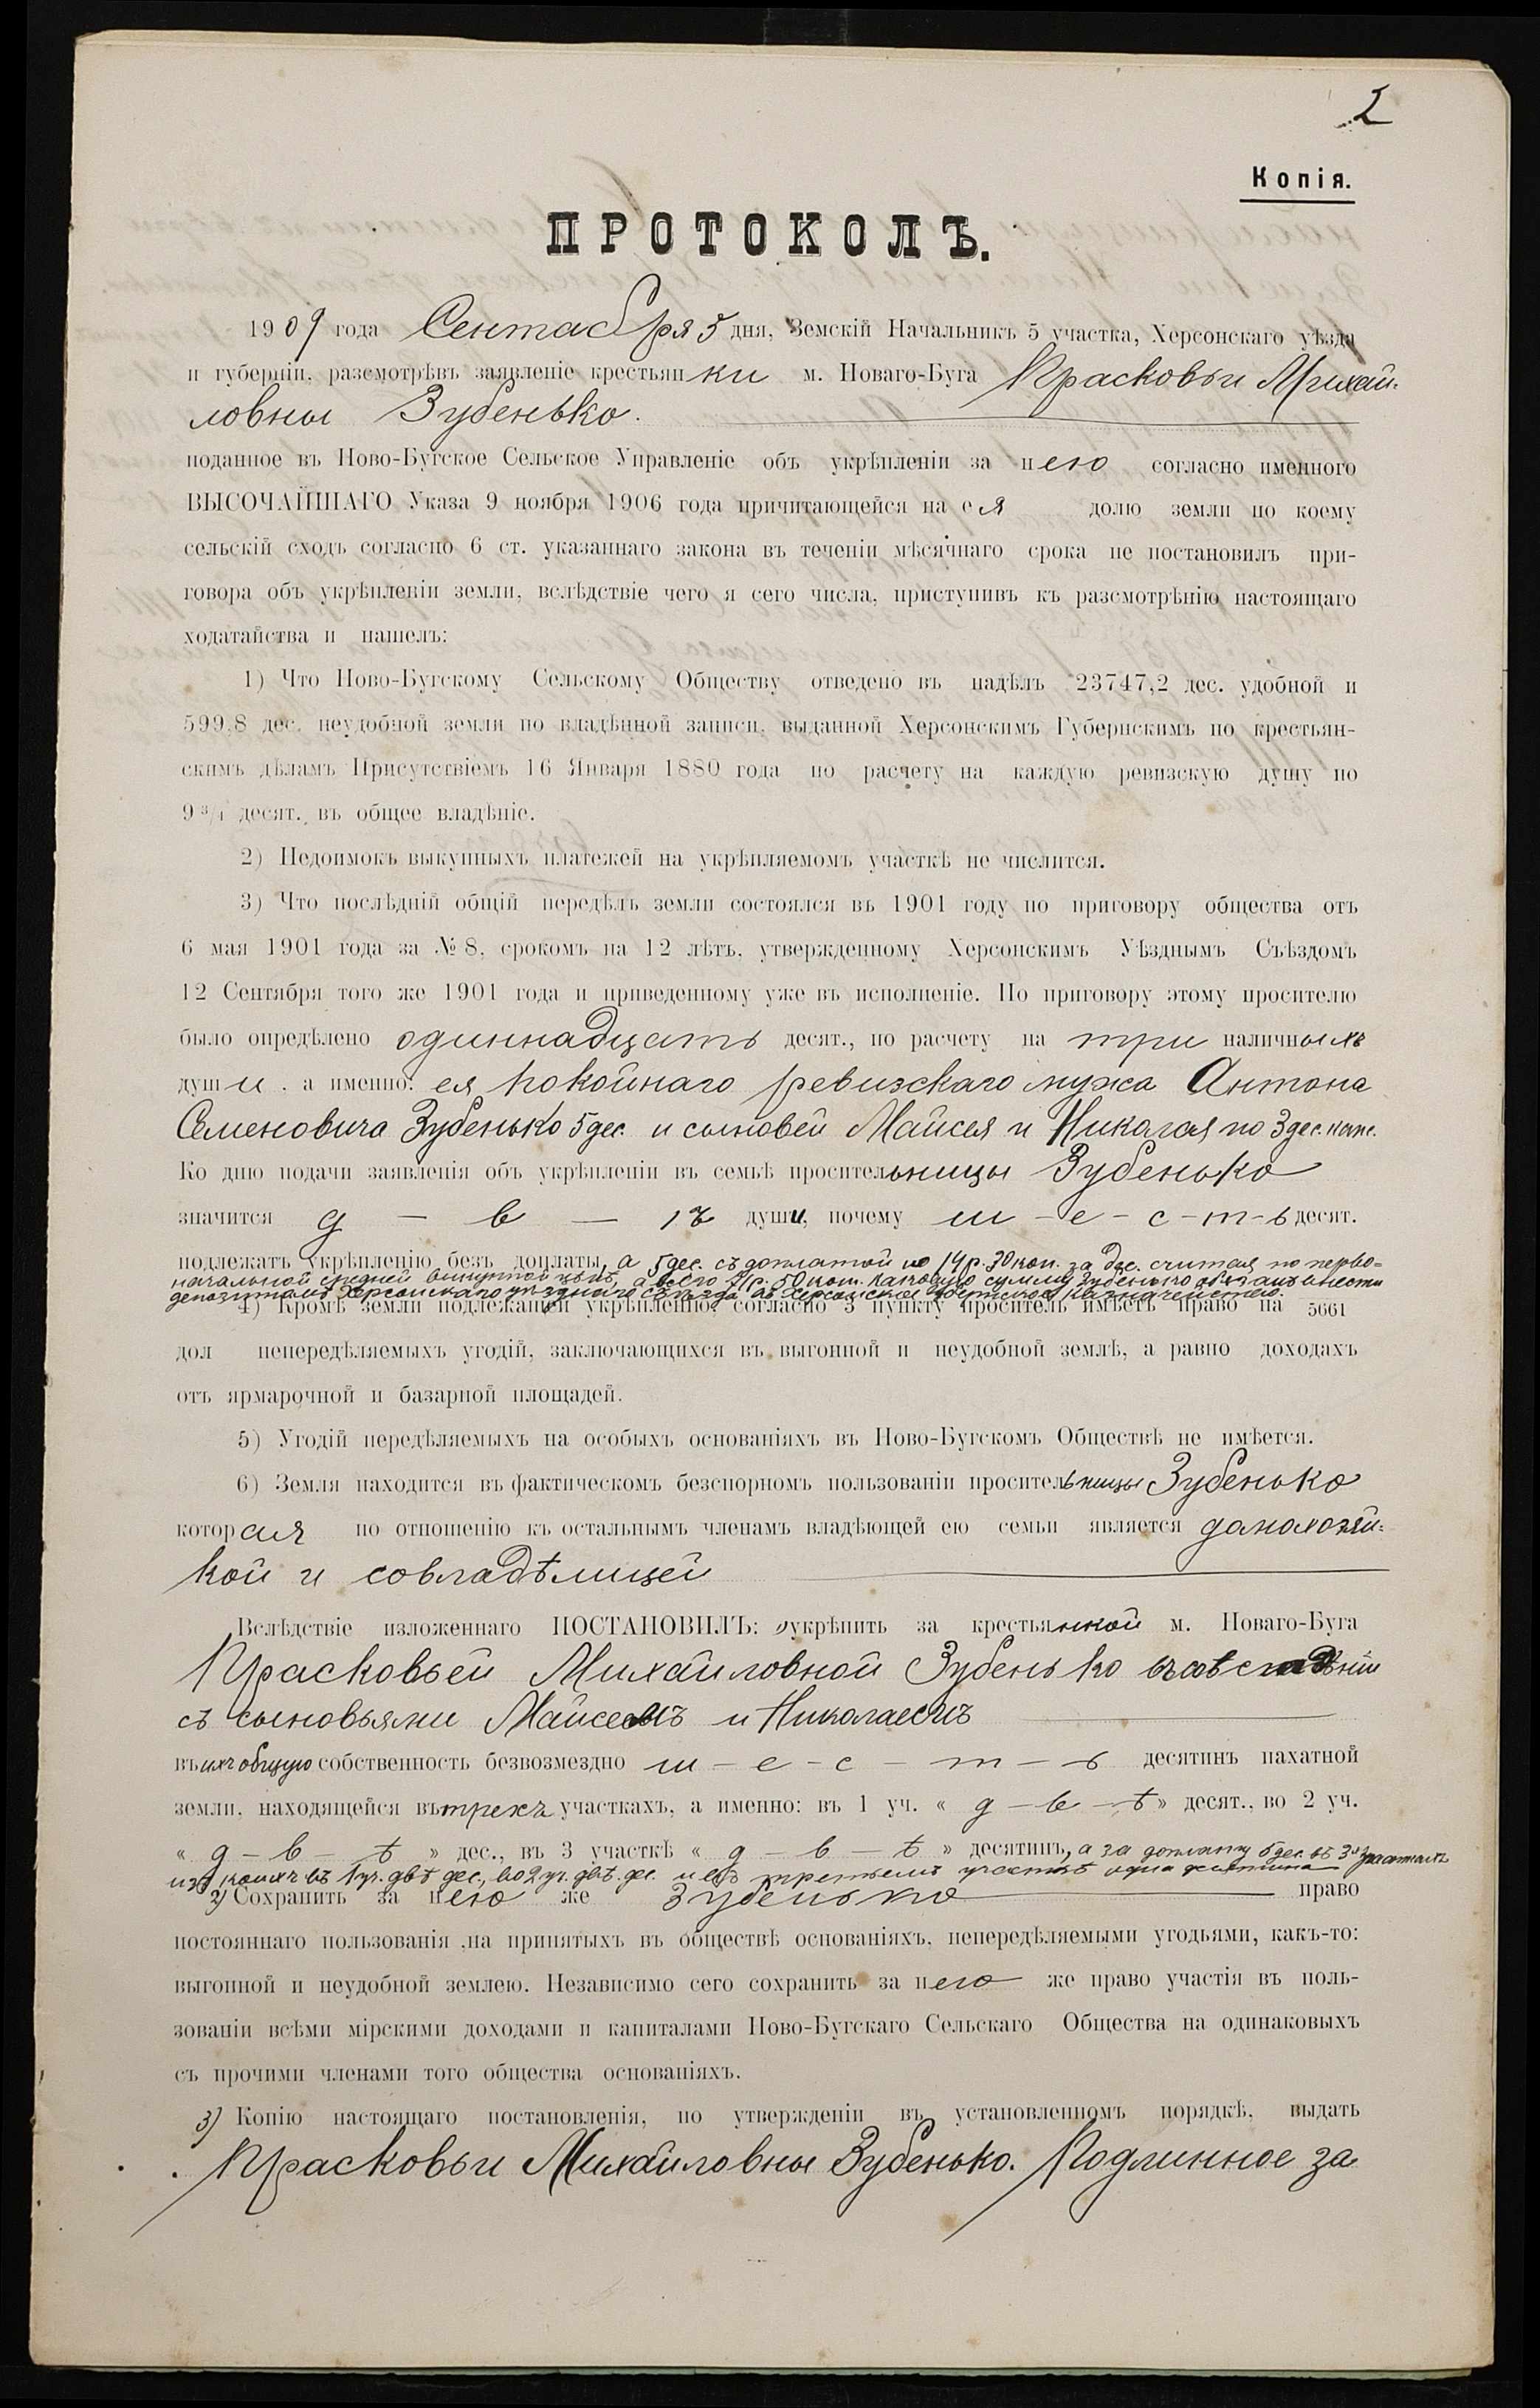 2
Копія.
ПРОТОКОЛЪ.
1909 года Сентабря 5 дня, Земскій Начальникъ 5 участка, Херсонскаго уѣзда
и губерніи, разсмотрѣвъ заявленіе крестьянки м. Новаго-Буга Прасковьи Михай-
ловны Зубенько.
поданное въ Ново-Бугское Сельское Управленіе объ укрѣпленіи за нею согласно именного
ВЫСОЧАЙШАГО Указа 9 ноября 1906 года причитающейся на ея долю земли по коему
сельскій сходъ согласно 6 ст. указаннаго закона въ теченіи мѣсячнаго срока не постановилъ при-
говора объ укрѣпленіи земли, вслѣдствіе чего я сего числа, приступивъ къ разсмотрѣнію настоящаго
ходатайства и нашелъ:
1) Что Ново-Бугскому Сельскому Обществу отведено въ надѣлъ 23747,2 дес. удобной и
599,8 дес. неудобной земли по владѣнной записи, выданной Херсонскимъ Губернскимъ по крестьян-
скимъ дѣламъ Присутствіемъ 16 Января 1880 года по расчету на каждую ревизскую душу по
9 3/4 десят., въ общее владѣніе.
2) Недоимокъ выкупныхъ платежей на укрѣпляемомъ участкѣ не числится.
3) Что послѣдній общій передѣлъ земли состоялся въ 1901 году по приговору общества отъ
6 мая 1901 года за № 8, срокомъ на 12 лѣтъ, утвержденному Херсонскимъ Уѣзднымъ Съѣздомъ
12 Сентября того же 1901 года и приведенному уже въ исполненіе. По приговору этому просителю
было опредѣлено одиннадцать десят., по расчету на три наличныхъ
души. а именно: ея покойнаго ревизскаго мужа Антона
Семеновича Зубенько 5 дес. и сыновей Майсея и Николая по 3 дес. кажд.
Ко дню подачи заявленія объ укрѣпленіи въ семьѣ просительницы Зубенько
значится д – в – ѣ души, почему ш – е – с – т – ь десят.
подлежатъ укрѣпленію безъ доплаты, а 5 дес. съ доплатой по 14 р. 30 коп. за дес. считая по перво-
начальной средней выкупной цѣнѣ, а всего 71 р. 50 коп. каковую сумму Зубенько обязанъ внести
депозитамъ Херсонскаго уѣзднаго съѣзда въ Херсонское Губернское Казначейство.
4) Кромѣ земли подлежащей укрѣпленію согласно 3 пункту проситель имѣетъ право на 5661
дол непередѣляемыхъ угодій, заключающихся въ выгонной и неудобной землѣ, а равно доходахъ
отъ ярмарочной и базарной площадей.
5) Угодій передѣляемыхъ на особыхъ основаніяхъ въ Ново-Бугскомъ Обществѣ не имѣется.
6) Земля находится въ фактическомъ безспорномъ пользованіи просительницы Зубенько
которая по отношенію къ остальнымъ членамъ владѣющей ею семьи является домохозяй-
кой и совладѣлицей
Вслѣдствіе изложеннаго ПОСТАНОВИЛЪ: укрѣпить за крестьянкой м. Новаго-Буга
Прасковьей Михайловной Зубенько
съ сыновьями Майсеемъ и Николаемъ
въ ихъ общую собственность безвозмездно ш – е – с – т – ь десятинъ пахатной
земли, находящейся въ трехъ участкахъ, а именно: въ 1 уч. « д – в – ѣ » десят., во 2 уч.
« д – в – ѣ » дес., въ 3 участкѣ « д – в – ѣ » десятинъ, а за доплату 5 дес. въ 3х участкахъ
изъ коихъ въ 1 уч. двѣ дес., во 2 уч. двѣ дес. и въ третьемъ участкѣ одна десятина
2) Сохранить за нею же Зубенько право
постояннаго пользованія ,на принятыхъ въ обществѣ основаніяхъ, непередѣляемыми угодьями, какъ-то:
выгонной и неудобной землею. Независимо сего сохранить за нею же право участія въ поль-
зованіи всѣми мірскими доходами и капиталами Ново-Бугскаго Сельскаго Общества на одинаковыхъ
съ прочими членами того общества основаніяхъ.
3) Копію настоящаго постановленія, по утвержденіи въ установленномъ порядкѣ, выдать
Прасковьи Михайловны Зубенько. Подлинное за